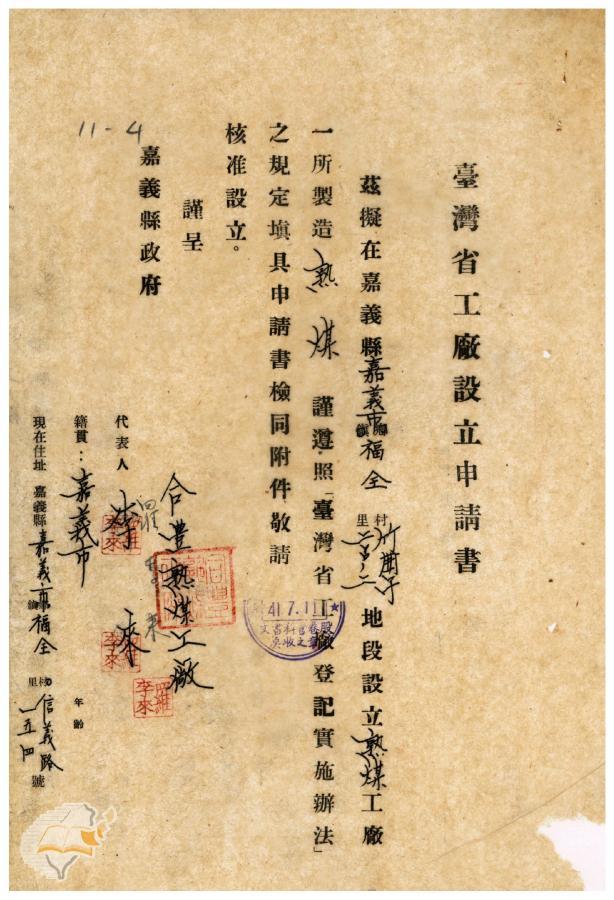 臺灣省工廠設立申請書
茲擬在嘉義縣嘉義市鎮福全村里竹圍子二〇八二地段設立熟煤工廠
一所製造熟煤謹遵照「臺灣省工廠登記實施辦法」
之規定填具申請書檢同附件敬請
核准設立。
謹呈
嘉義縣政府
11-4
合豊熟煤工廠
代表人 李 來
羅李來
年齡
籍貫：嘉義市
現在住址 嘉義縣嘉義市鎮福全村里信義路一五四號
41.7.11
羅李來
羅李來
羅李來